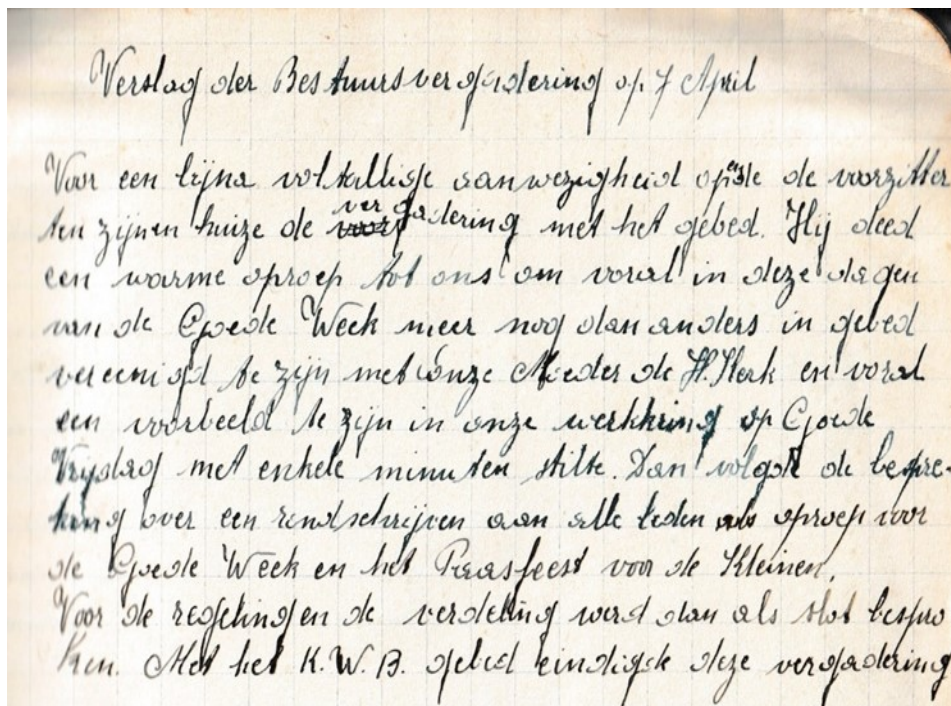 Verslag der Bestuursvergadering op 7 April
Voor een bijna voltallige aanwezigheid opende de voorzitter
ten zijnen huize de vergadering met het gebed. Hij deed
een warme oproep tot ons om vooral in deze dagen
van de Goede Week meer nog dan anders in gebed
vereenigd te zijn met onze Moeder de H. Kerk en vooral
een voorbeeld te zijn in onze werkkring op Goede
Vrijdag met enkele minuten stilte. Dan volgde de bespre-
king over een rondschrijven aan alle leden als oproep voor
de Goede Week en het Paasfeest voor de Kleinen.
Voor de regelingen de verdeling werd dan als slot bespro
ken. Met het K.W.B. gebed eindigde deze vergadering